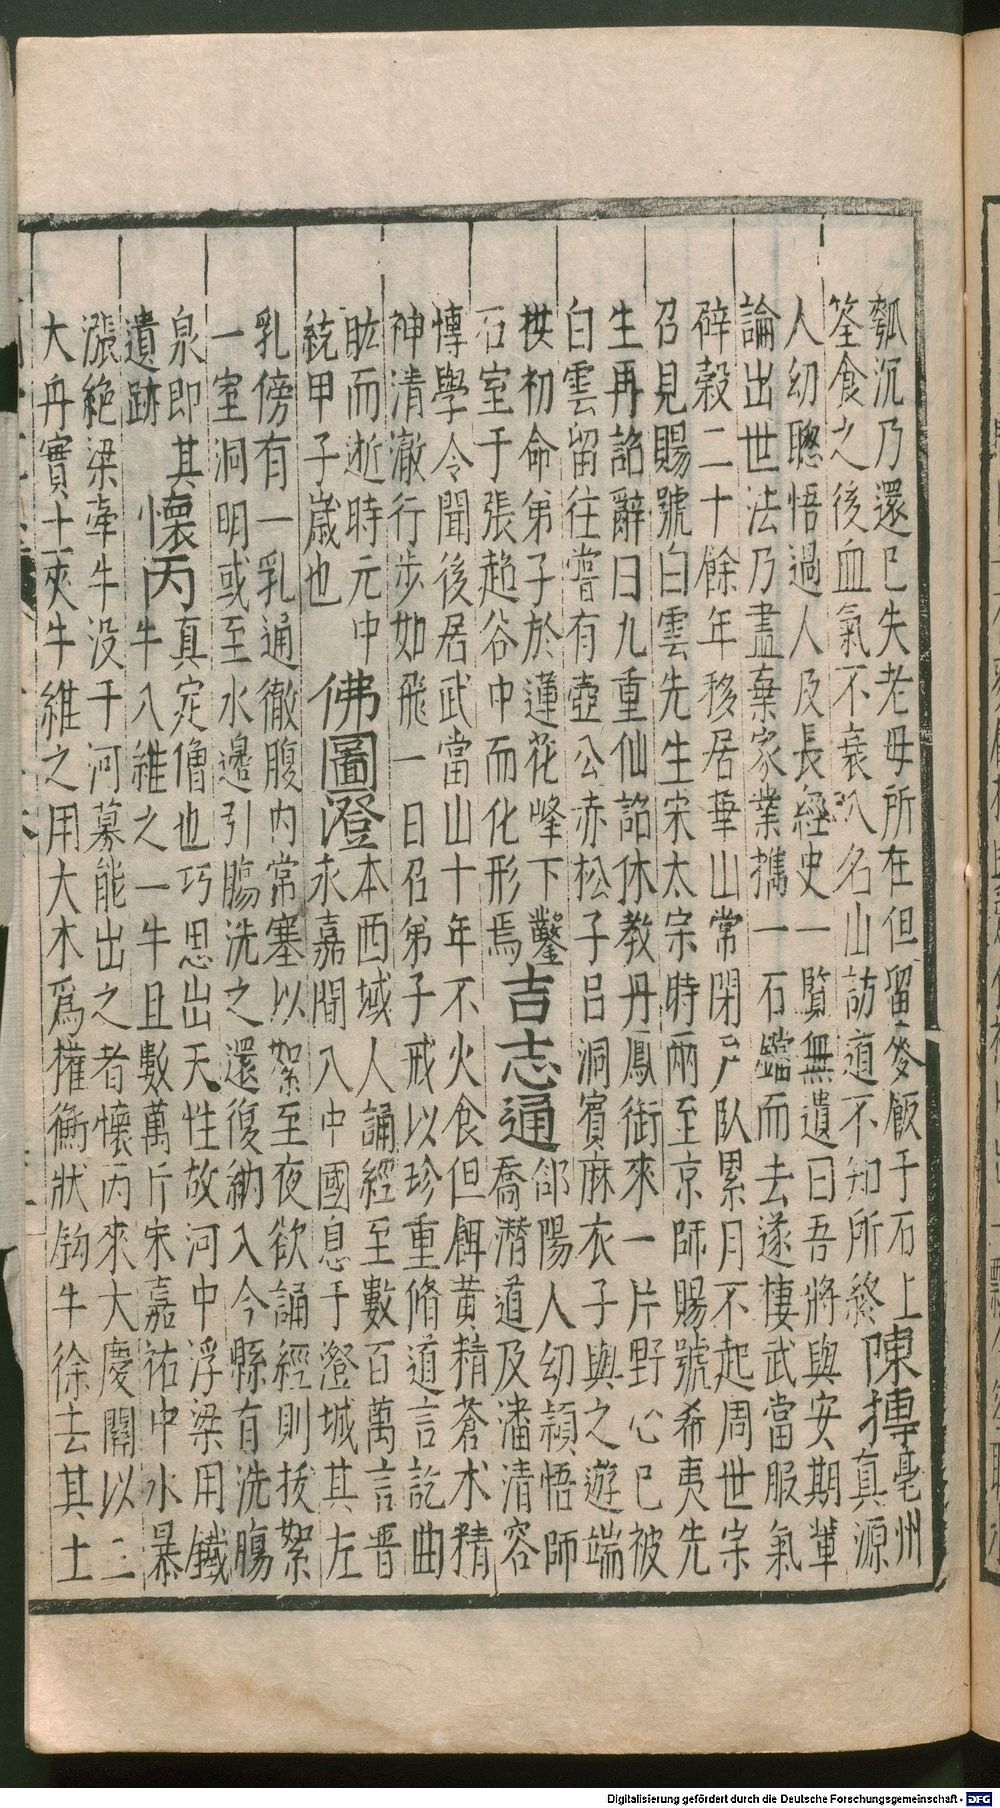 瓠沉乃還已失老母所在但留麥飯于石上
筌食之後血氣不衰入名山訪道不知所終
陳摶
亳州
真源
人幼聰悟過人及長經史一覧無遺曰吾將與安期輩
論出世法乃盡棄家業攜一石鐺而去遂棲武當服氣
辟穀二十餘年移居華山常閉户臥累月不起周世宗
召見賜號白雲先生宋太宗時兩至京師賜號希夷先
生再詔辭曰九重仙詔休教丹鳳銜來一片野心已被
白雲留往嘗有壺公赤松子呂洞賓麻衣子與之遊端
拱初命弟子於蓮花峰下鑿
石室于張超谷中而化形焉
吉志通
郃陽人幼穎悟師
喬潛道及潘清容
博學令聞後居武當山十年不火食但餌黄精蒼术精
神清澈行步如飛一日召弟子戒以珍重脩道言訖曲
肱而逝時元中
統甲子歲也
佛圖澄
本西域人誦經至數百萬言晋
永嘉間入中國息于澄城其左
乳傍有一乳通徹腹内常塞以絮至夜欲誦經則拔絮
一室洞明或至水邊引腸洗之還復納入今縣有洗腸
泉即其
遺跡
懷丙
真定僧也巧思出天性故河中浮梁用鐵
牛八維之一牛且數萬斤宋嘉祐中水暴
漲絶梁牽牛没于河募能出之者懷丙來大慶關以二
大舟實土夾牛維之用大木爲權衡狀鈎牛徐去其土
Digitalisierung gefördert durch die Deutsche Forschungsgemeinschaft - DFG